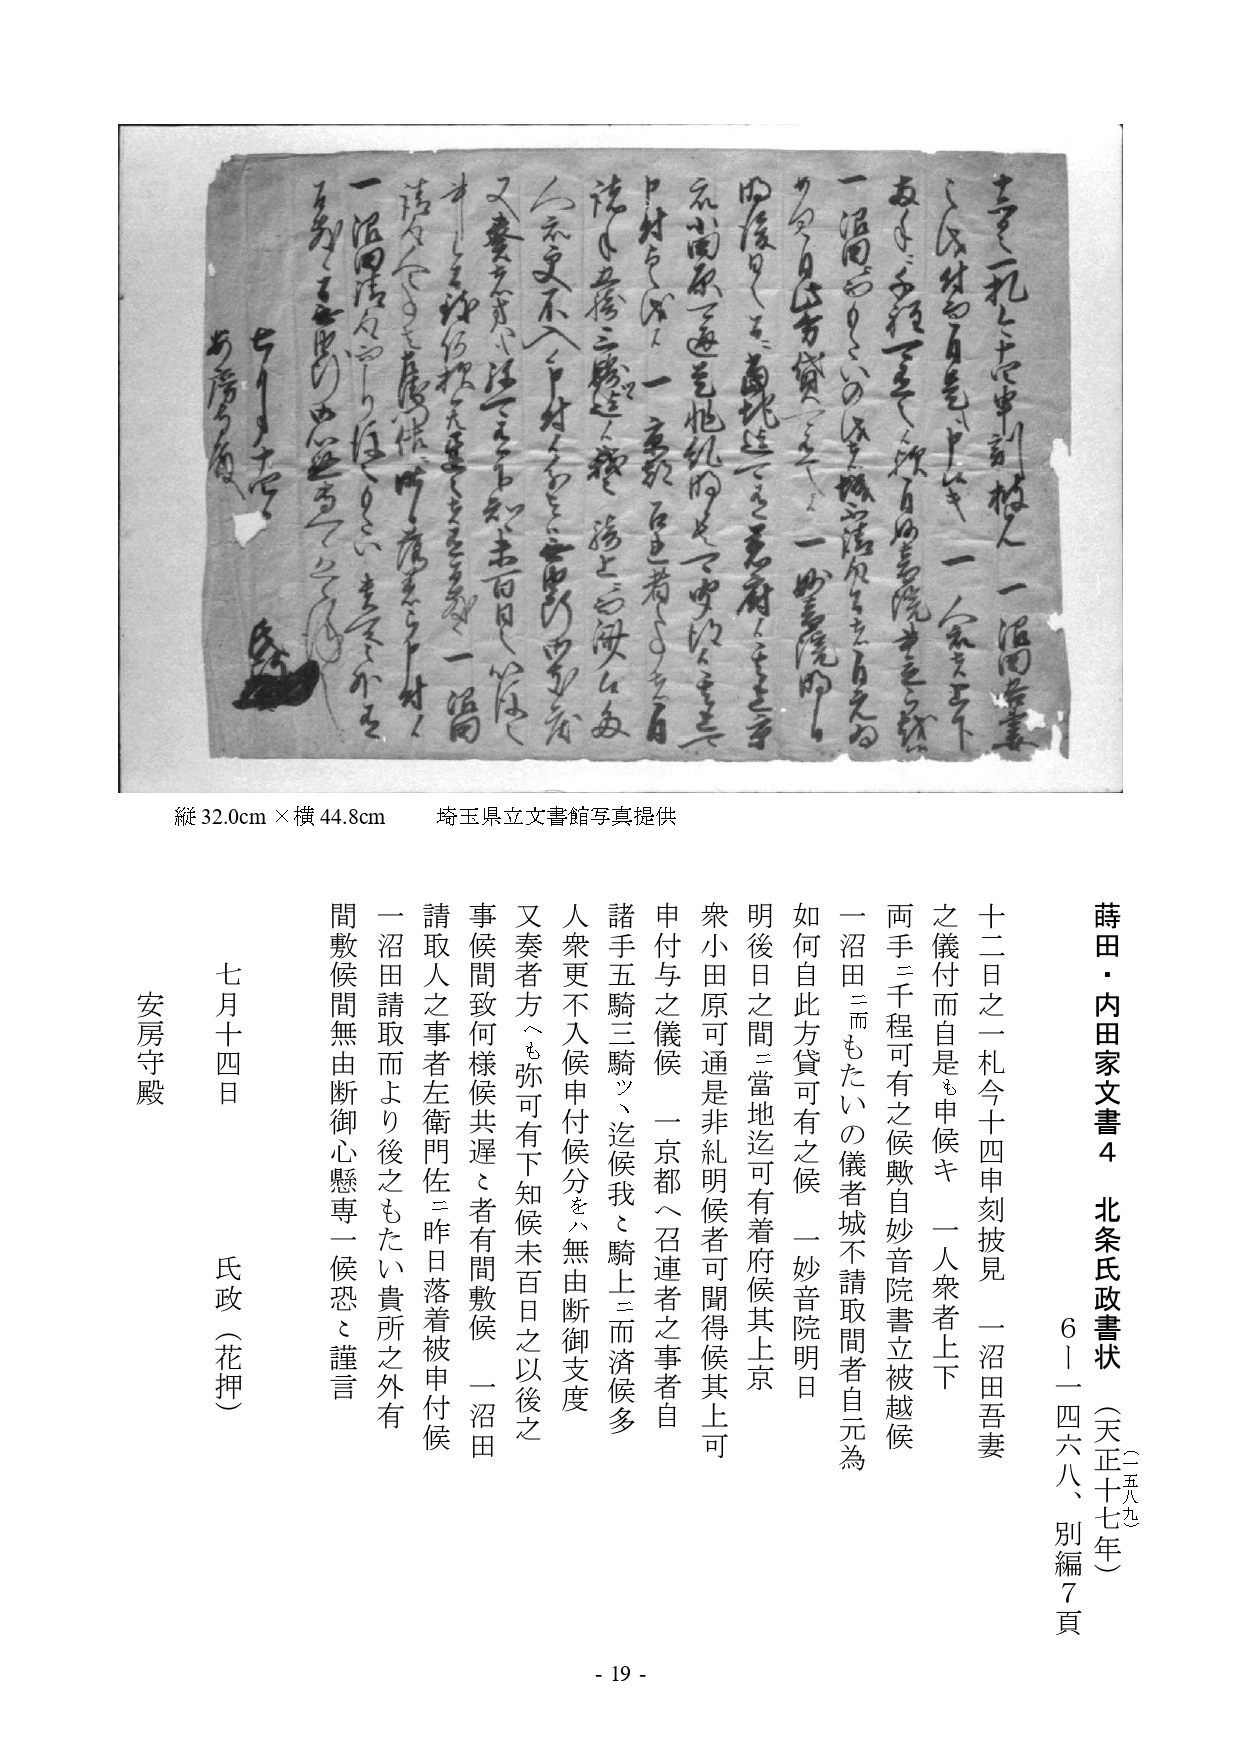 縦 32.0cm ×横 44.8cm　埼玉県立文書館写真提供
蒔田・内田家文書４　北条氏政書状　（天正十七年）
（一五八九）
６―一四六八、別編７頁
十二日之一札今十四申刻披見　一沼田吾妻
之儀付而自是も申候キ　一人衆者上下
両手ニ千程可有之候歟自妙音院書立被越候
一沼田ニ而もたいの儀者城不請取間者自元為
如何自此方貸可有之候　一妙音院明日
明後日之間ニ當地迄可有着府候其上京
衆小田原可通是非糺明候者可聞得候其上可
申付与之儀候　一京都へ召連者之事者自
諸手五騎三騎ツヽ迄候我〻騎上ニ而済候多
人衆更不入候申付候分をハ無由断御支度
又奏者方へも弥可有下知候未百日之以後之
事候間致何様候共遅〻者有間敷候　一沼田
請取人之事者左衛門佐ニ昨日落着被申付候
一沼田請取而より後之もたい貴所之外有
間敷候間無由断御心懸専一候恐〻謹言
七月十四日　氏政（花押）
安房守殿
- 19 -